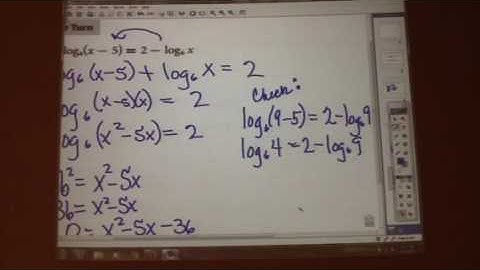 Turn
log₆(x - 5) = 2 - log₆x
log₆(x-5) + log₆x = 2
log₆(x-5)(x) = 2
log₆(x²-5x) = 2
6² = x²-5x
36 = x²-5x
0 = x²-5x-36
Check:
log₆(9-5) = 2-log₆9
log₆4 = 2-log₆9